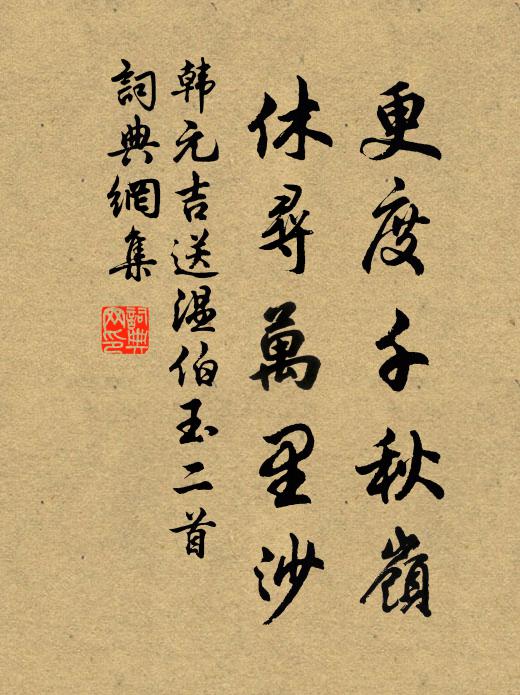 更度千秋嶺
休尋萬里沙
韩元吉送温伯玉二首
詞典網集
詞典網印